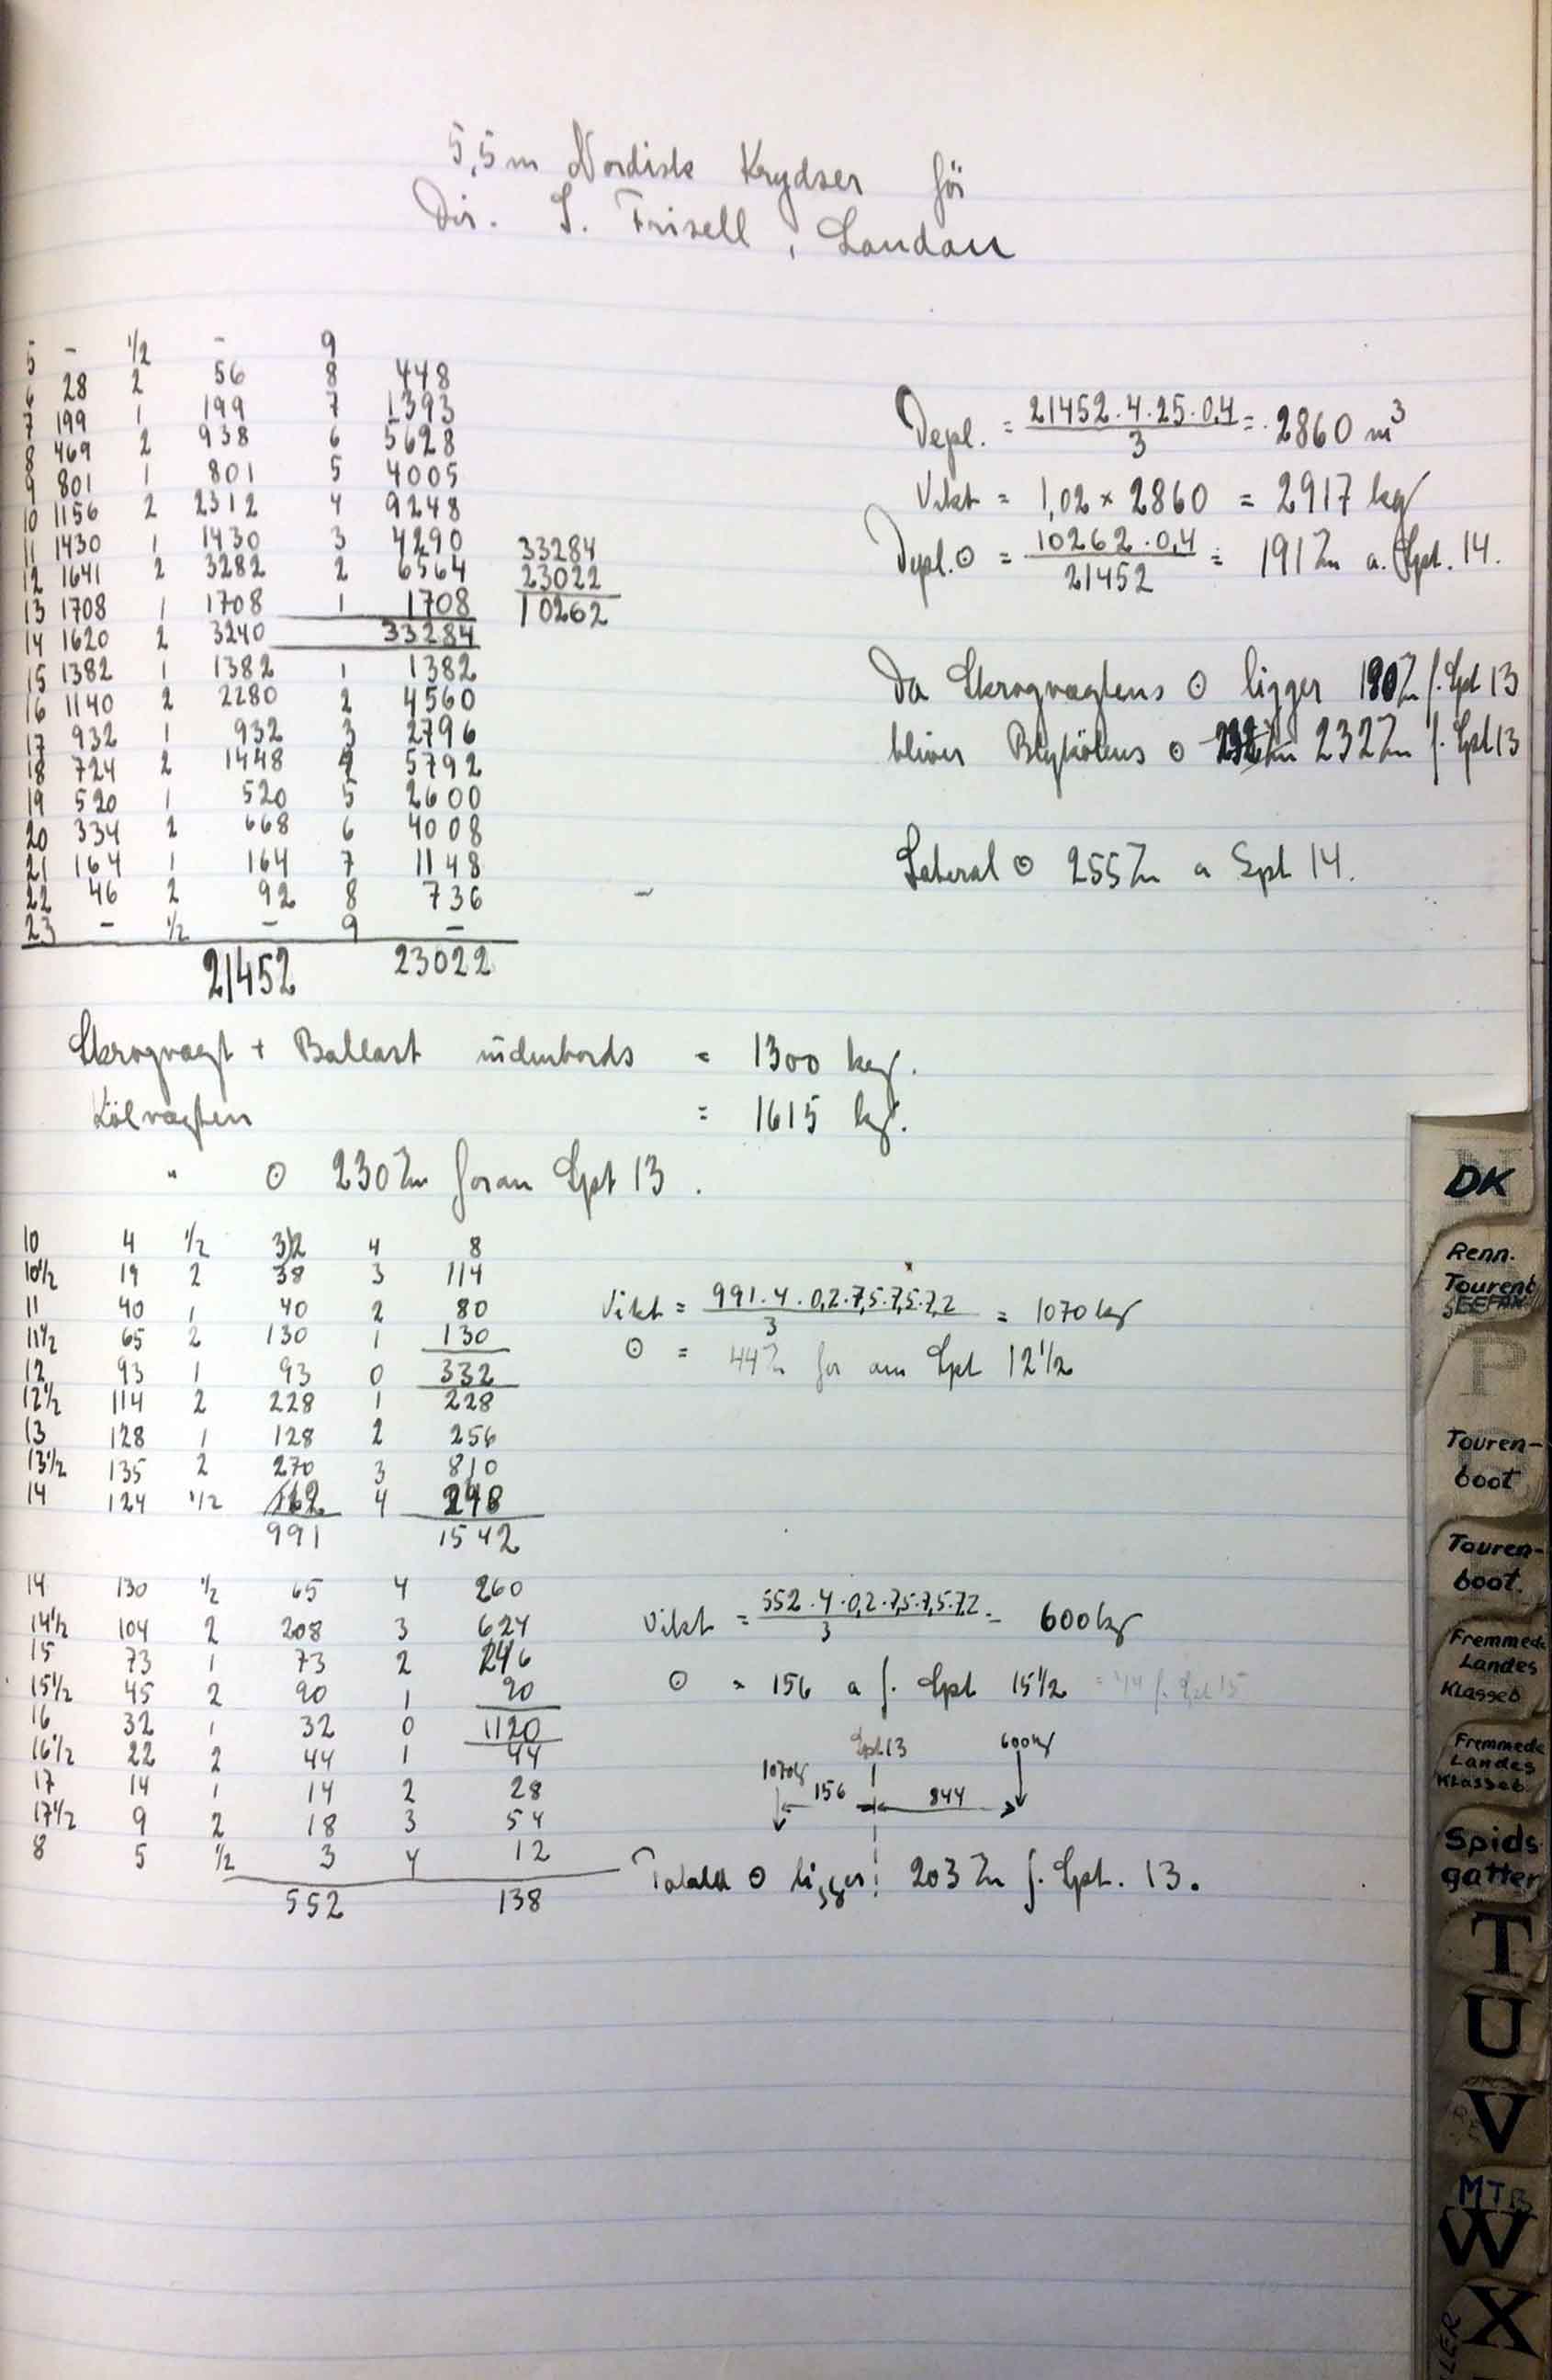 5,5 m Nordisk Krydser för
Dir. S. Frisell, Landau
5 - 1/2 - 9
6 28 2 56 8 448
7 199 1 199 7 1393
8 469 2 938 6 5628
9 801 1 801 5 4005
10 1156 2 2312 4 9248
11 1430 1 1430 3 4290 33284
12 1641 2 3282 2 6564 23022
13 1708 1 1708 1 1708 10262
14 1620 2 3240 33284
15 1382 1 1382 1 1382
16 1140 2 2280 2 4560
17 932 1 932 3 2796
18 724 2 1448 4 5792
19 520 1 520 5 2600
20 334 2 668 6 4008
21 164 1 164 7 1148
22 46 2 92 8 736
23 - 1/2 - 9 -
21452 23022
Depl. = 21452 · 4 · 25 · 0,4 / 3 = 2860 m³
Vikt = 1,02 × 2860 = 2917 kg
Depl. ⊙ = 10262 · 0,4 / 21452 = 191 a. Spt. 14.
Da Skrogvægtens ⊙ ligger 190 f. Spt 13
bliver Blykölens ⊙ 232 f. Spt 13
Lateral ⊙ 255 a Spt 14.
Skrogvægt + Ballast indenbords = 1300 kg.
Kölvægten = 1615 kg.
" ⊙ 230 foran Spt 13.
10 4 1/2 2 4 8
10 1/2 19 2 38 3 114
11 40 1 40 2 80
11 1/2 65 2 130 1 130
12 93 1 93 0 332
12 1/2 114 2 228 1 228
13 128 1 128 2 256
13 1/2 135 2 270 3 810
14 124 1/2 62 4 248
991 1542
Vikt = 991 · 4 · 0,2 · 7,5 · 7,5 · 7,2 / 3 = 1070 kg
⊙ = 44 for om Spt 12 1/2
14 130 1/2 65 4 260
14 1/2 104 2 208 3 624
15 73 1 73 2 146
15 1/2 45 2 90 1 90
16 32 1 32 0 1120
16 1/2 22 2 44 1 44
17 14 1 14 2 28
17 1/2 9 2 18 3 54
8 5 1/2 3 4 12
552 138
Vikt = 552 · 4 · 0,2 · 7,5 · 7,5 · 7,2 / 3 = 600 kg
⊙ = 156 a f. Spt 15 1/2 = 44 f. Spt 15
Spt. 13 600 kg
1070 kg 156 844
Totala ⊙ ligger 203 f. Spt. 13.
DK
Renn.
Tourenb
P
Touren-
boot
Touren-
boot.
Fremmede
Landes
Klasseb
Fremmede
Landes
Klasseb.
Spids
gatter
T
U
V
MTB
W
X